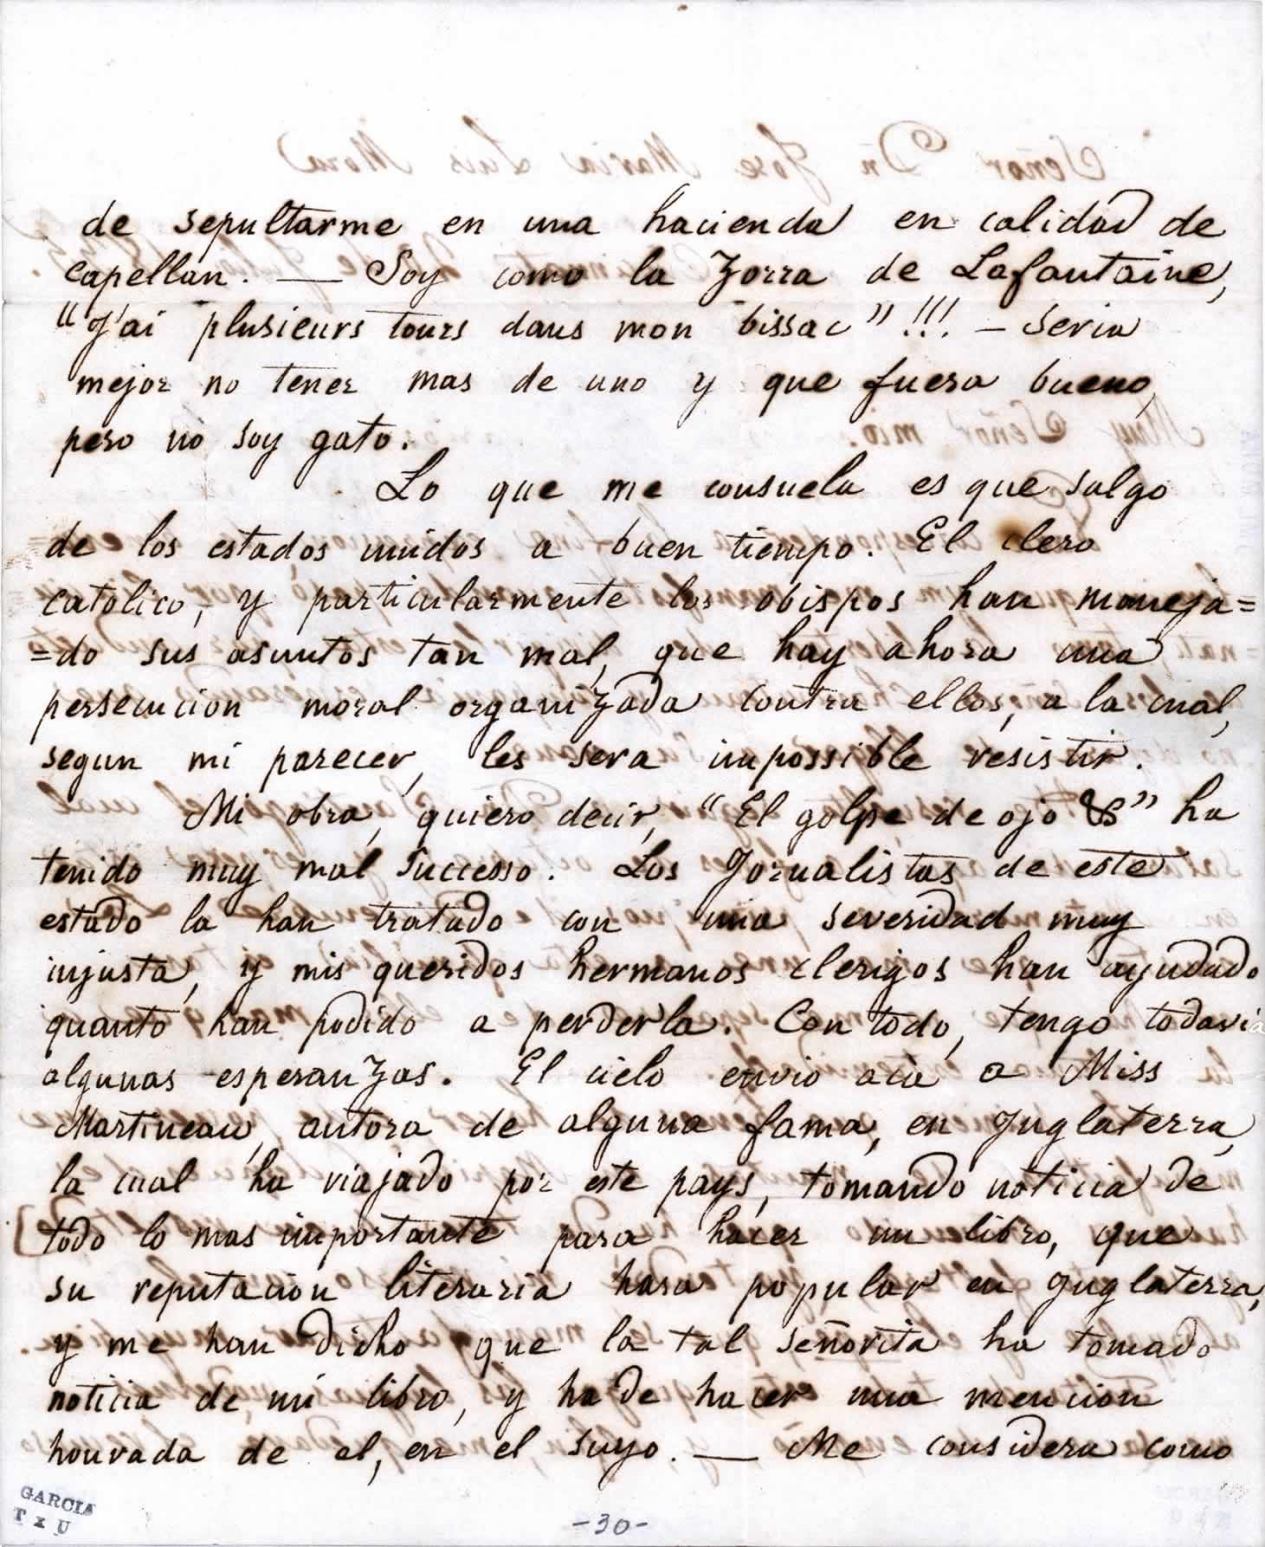 de sepultarme en una hacienda en calidad de
capellan. — Soy como la Zorra de Lafontaine,
"J'ai plusieurs tours dans mon bissac" !!! — Seria
mejor no tener mas de uno y que fuera bueno,
pero no soy gato.
Lo que me consuela es que salgo
de los estados unidos a buen tiempo. El clero
catolico, y particularmente los obispos han maneja=
=do sus asuntos tan mal, que hay ahora una
persecucion moral organizada contra ellos, a la cual,
segun mi parecer, les sera impossible resistir.
Mi obra, quiero decir, "El golpe de ojo &" ha
tenido muy mal Sucesso. Los Jornalistas de este
estado la han tratado con una severidad muy
injusta, y mis queridos hermanos clerigos han ayudado
quanto han podido a perderla. Con todo, tengo todavia
algunas esperanzas. El cielo envio acà a Miss
Martineau, autora de alguna fama, en Inglaterra,
la cual ha viajado por este pays, tomando noticia de
todo lo mas importante para hacer un libro, que
su reputacion literaria hara popular en Inglaterra,
y me han dicho que la tal señorita ha tomado
noticia de mi libro, y ha de hacer una mencion
honrada de el, en el suyo. — Me considera como
GARCIA
-30-